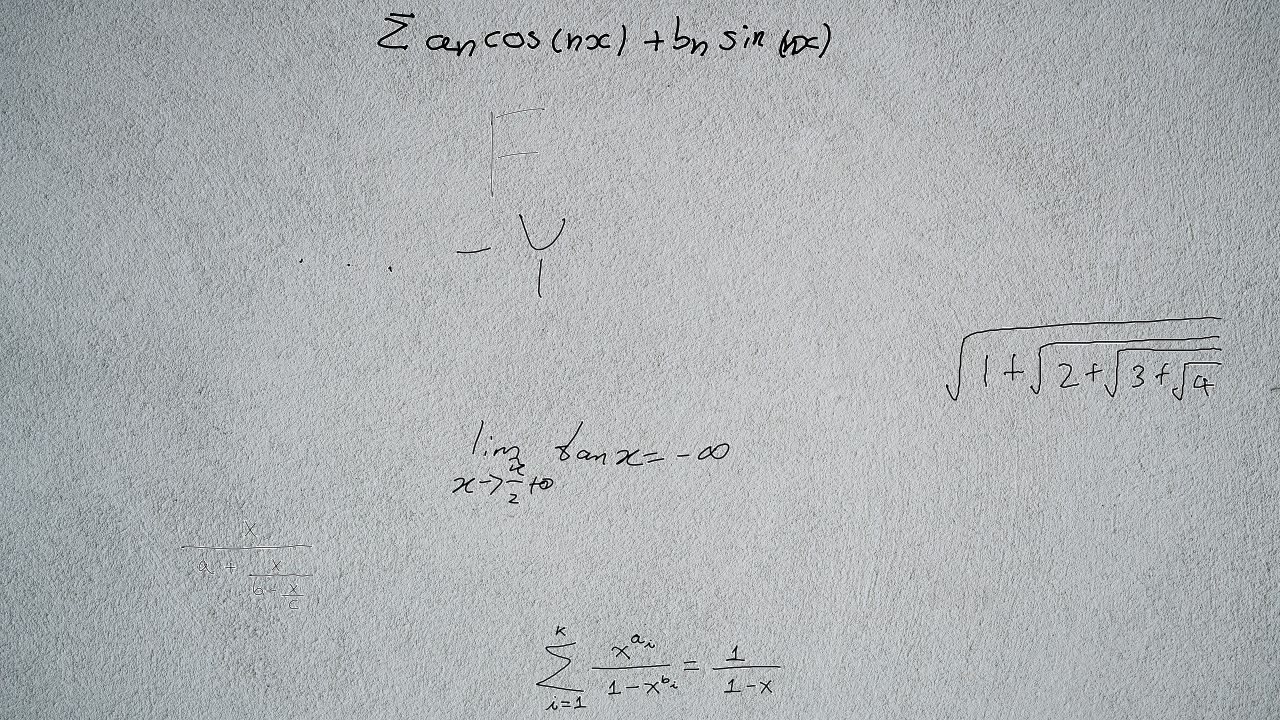 Σ an cos (nx) + bn sin (nx)
F
- Y
. . .
√(1+√(2+√(3+√4)))
lim_{x→π/2+0} tan x = -∞
x/(a + x/(b - x/c))
\sum_{i=1}^{k} x^{a_i}/(1-x^{b_i}) = 1/(1-x)